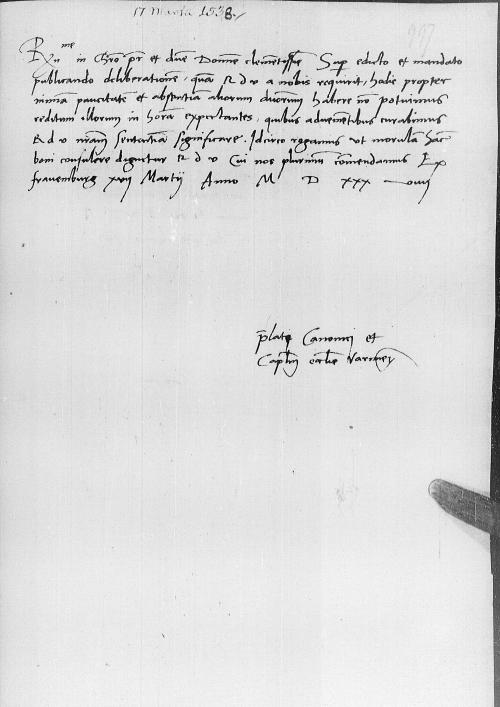 17 Marta 1538.
R me in Chro pr et dne Domine clementissime Sup edicto et mandato
publicando deliberatione, qua R d v a nobis requirit, hodie propter
nimia paucitate et absentia aliorum duorum habere no potuimus
reditum illorum in hora expectantes, quibus advenietibus curabimus
R d v nram sententia significare. Idcirco rogamus ut morulam hac
boni consulere dignetur R d v Cui nos plurimu comendamus Ex
frauenburg xvij Martij Anno M D XXX viij
plati Canonici et
Caplm ecclie Varmien